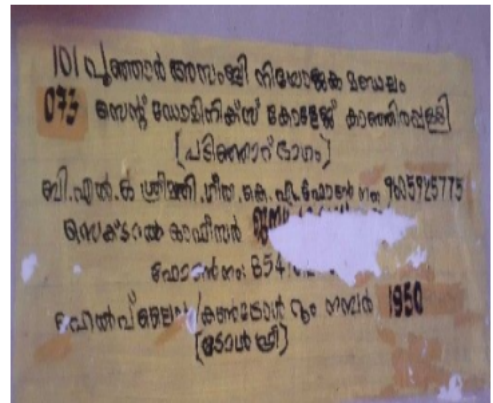 101 പൂഞ്ഞാർ അസംബ്ളി നിയോജക മണ്ഡലം
073 സെന്റ് ഡോമിനിക്സ് കോളേജ് കാഞ്ഞിരപ്പള്ളി
(പടിഞ്ഞാറ് ഭാഗം)
ബി.എൽ.ഒ ശ്രീമതി.ഗീത.കെ.എം.ഫോൺ നമ്പർ 9605925775
സെക്ടറൽ ഓഫീസർ
ഫോൺ നം:
ഹെൽപ് ലൈൻ/കൺട്രോൾ റൂം നമ്പർ 1950
(ടോൾ ഫ്രീ)